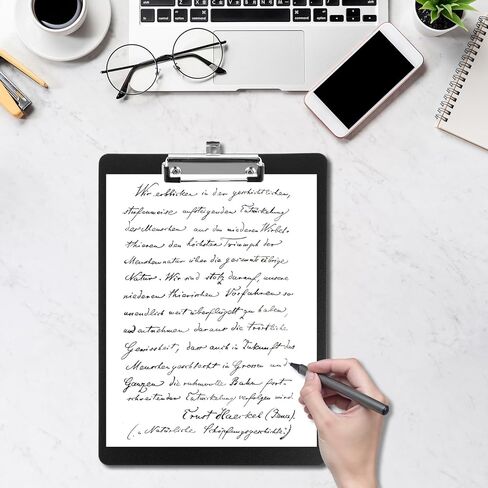 Wir erblicken in der geschichtlichen,
stufenweise aufsteigenden Entwickelung
des Menschen aus den niederen Wirbel-
thieren den höchsten Triumph der
Menschennatur über die gesammte übrige
Natur. Wir sind stolz darauf, unsere
niederen thierischen Vorfahren so
unendlich weit überflügelt zu haben,
und entnehmen daraus die tröstliche
Gewissheit, dass auch in Zukunft das
Menschengeschlecht im Grossen und
Ganzen die ruhmvolle Bahn fort-
schreitender Entwickelung verfolgen wird.
Ernst Haeckel (Jena).
(„Natürliche Schöpfungsgeschichte“)